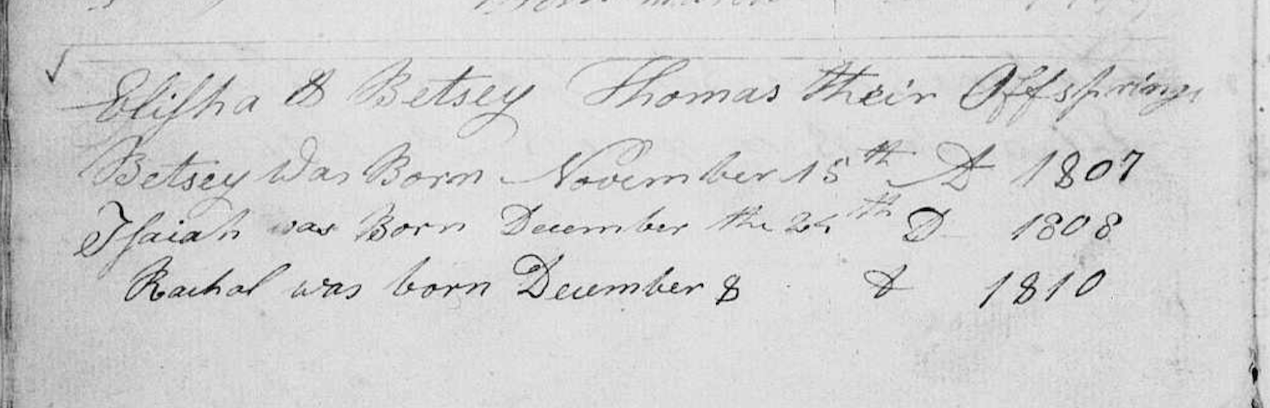 Elisha & Betsey Thomas their Offspring
Betsey Was Born November 15th D 1807
Isaiah was Born December the 24th D 1808
Rachal was born December 8 D 1810